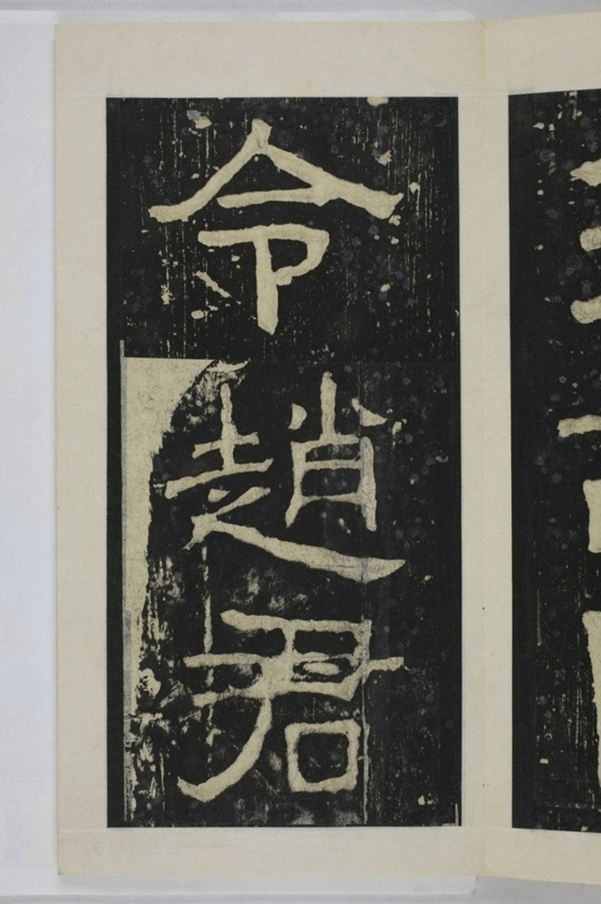 令趙君